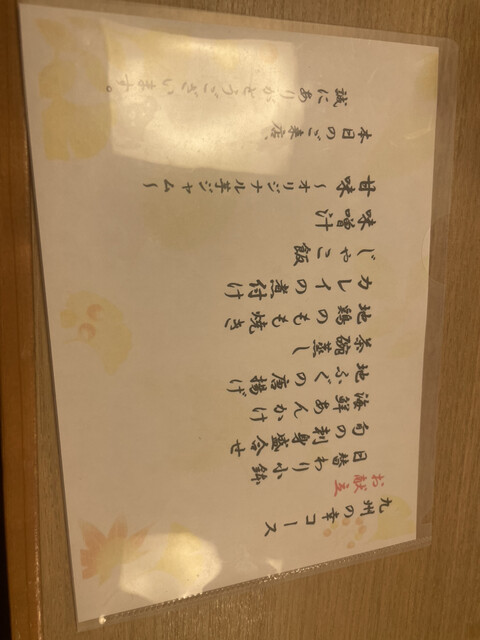 九州の幸コース
お献立
日替わり小鉢
旬の刺身盛合せ
海鮮あんかけ
地ふぐの唐揚げ
茶碗蒸し
地鶏のもも焼き
カレイの煮付け
じゃこ飯
味噌汁
甘味～オリジナル芋ジャム～
本日のご来店、
誠にありがとうございます。